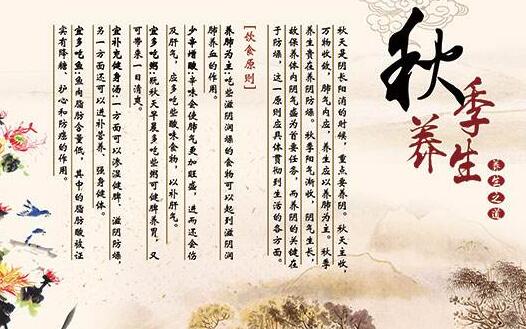 秋季养生
养生之道
秋天是阴长阳消的时候，重点要养阴。秋天主收，
万物收敛，肺气内应，养生应以养肺为主。秋季
养生贵在养阴防燥。秋季阳气渐收，阴气生长，
故保养体内阴气盛为首要任务，而养阴的关键在
于防燥，这一原则应具体贯彻到生活的各方面。
【饮食原则】
养肺为主：吃些滋阴润燥的食物可以起到滋阴润
肺养血的作用。
少辛增酸：辛味会使肺气更加旺盛，进而还会伤
及肝气，应多吃些酸味食物，以补肝气。
宜多吃粥：既秋天早晨多吃些粥可健脾养胃，又
可带来一日清爽。
宜补充健身汤：一方面可以渗湿健脾、滋阴防燥，
另一方面还可以进补营养、强身健体。
宜多吃鱼：鱼肉脂肪含量低，其中的脂肪酸被证
实有降糖、护心和防癌的作用。